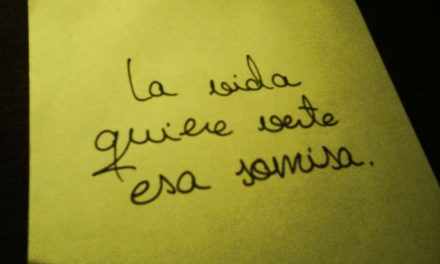 La vida
quiere verte
esa sonrisa.